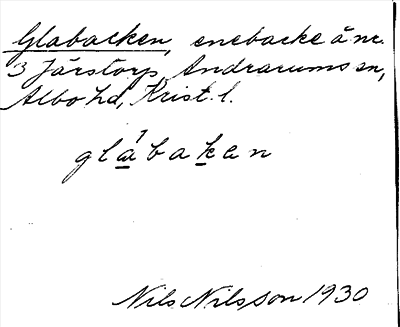 Glabacken, enebacke å nr.
3 Järstorp, Andrarums sn,
Albo hd, Krist. l.
gla̱´baḵen
Nils Nilsson 1930